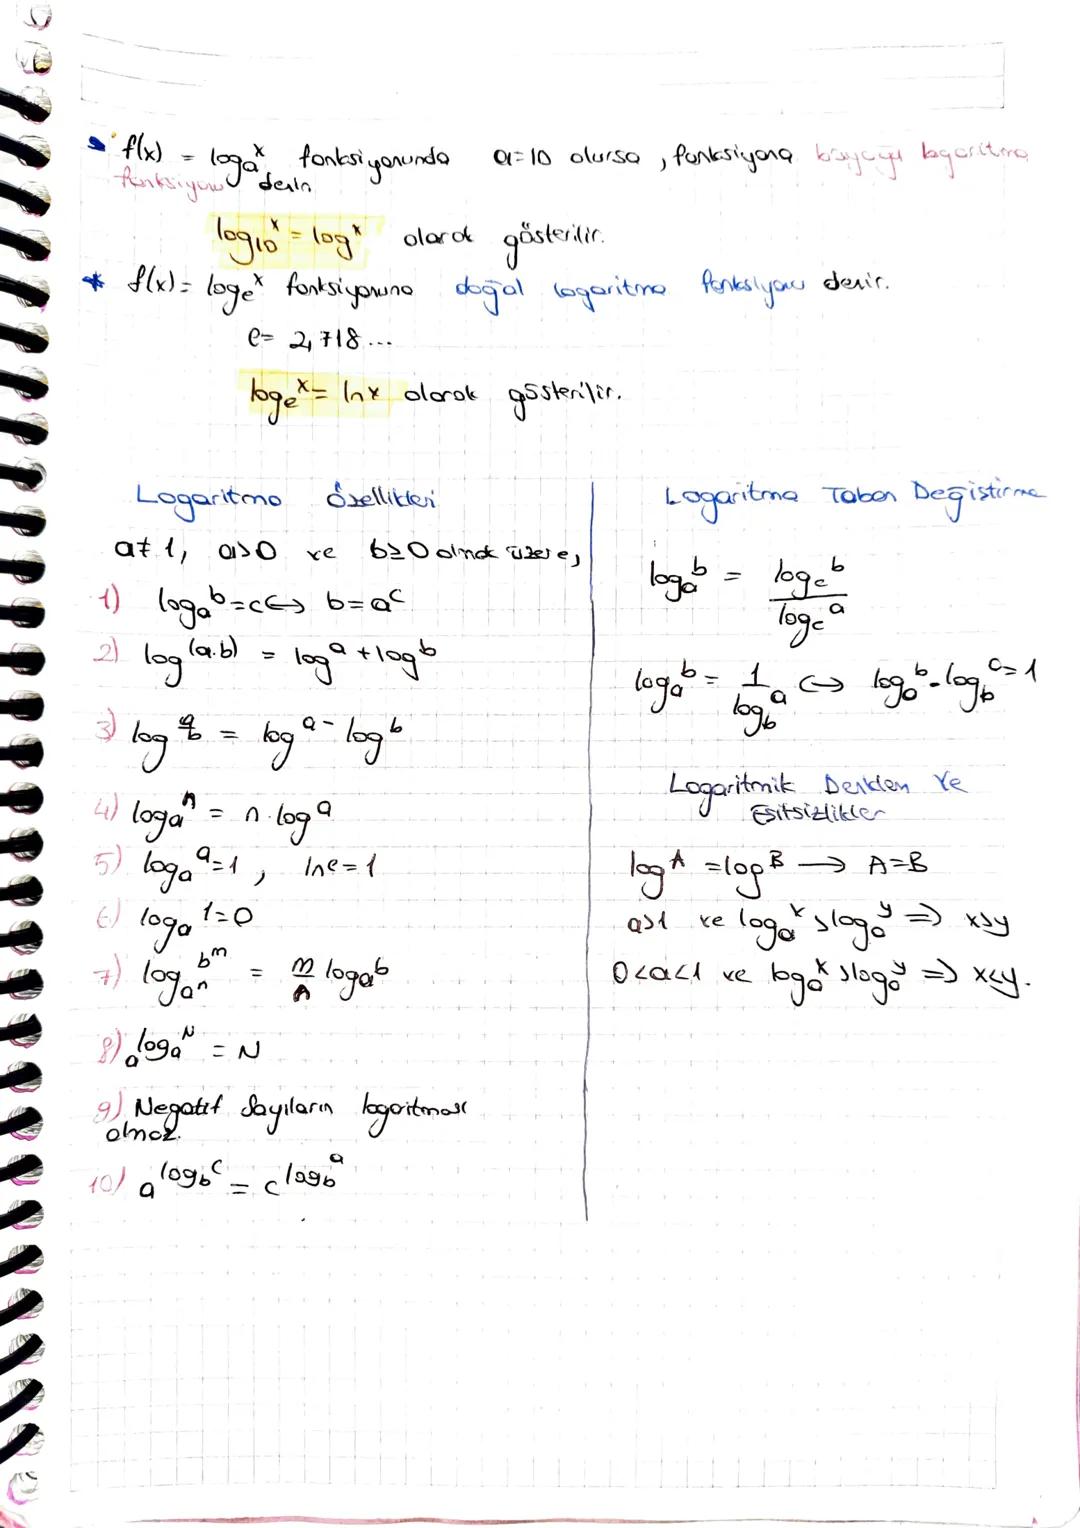 f(x) = logₐˣ fonksiyonunda a=10 olursa, fonksiyona bayağı logaritma
fonksiyonu denir
log₁₀ˣ = logˣ olarak gösterilir.
* f(x) = logₑˣ fonksiyonuna doğal logaritma fonksiyonu denir.
e= 2,718...
logₑˣ = lnx olarak gösterilir.
Logaritma Özellikleri
a≠1, a>0 ve b≥0 olmak üzere,
1) logₐᵇ=c ↔ b=aᶜ
2) log^(a.b) = logᵃ + logᵇ
3) log^(a/b) = logᵃ - logᵇ
4) logaⁿ = n·logᵃ
5) logₐᵃ=1, lne=1
6) logₐ¹=0
7) log_(aⁿ) b^m = m/n logₐb
8) a^(logₐN) = N
9) Negatif Sayıların logaritması
olmaz.
10) a^(log_b c) = c^(log_b a)
Logaritma Taban Değiştirme
logₐᵇ = log_c b / log_c a
logₐᵇ = 1 / log_b a ↔ logₐᵇ . log_b c = 1
Logaritmik Denklem ve
Eşitsizlikler
log^A = log^B → A=B
a>1 ve logₐˣ > logₐʸ ⇒ x>y
0<a<1 ve logₐˣ > logₐʸ ⇒ x<y.